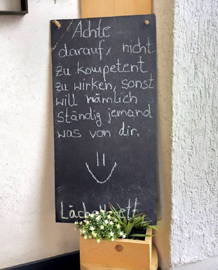 Achte
darauf, nicht
zu kompetent
zu wirken, sonst
will nämlich
ständig jemand
was von dir.